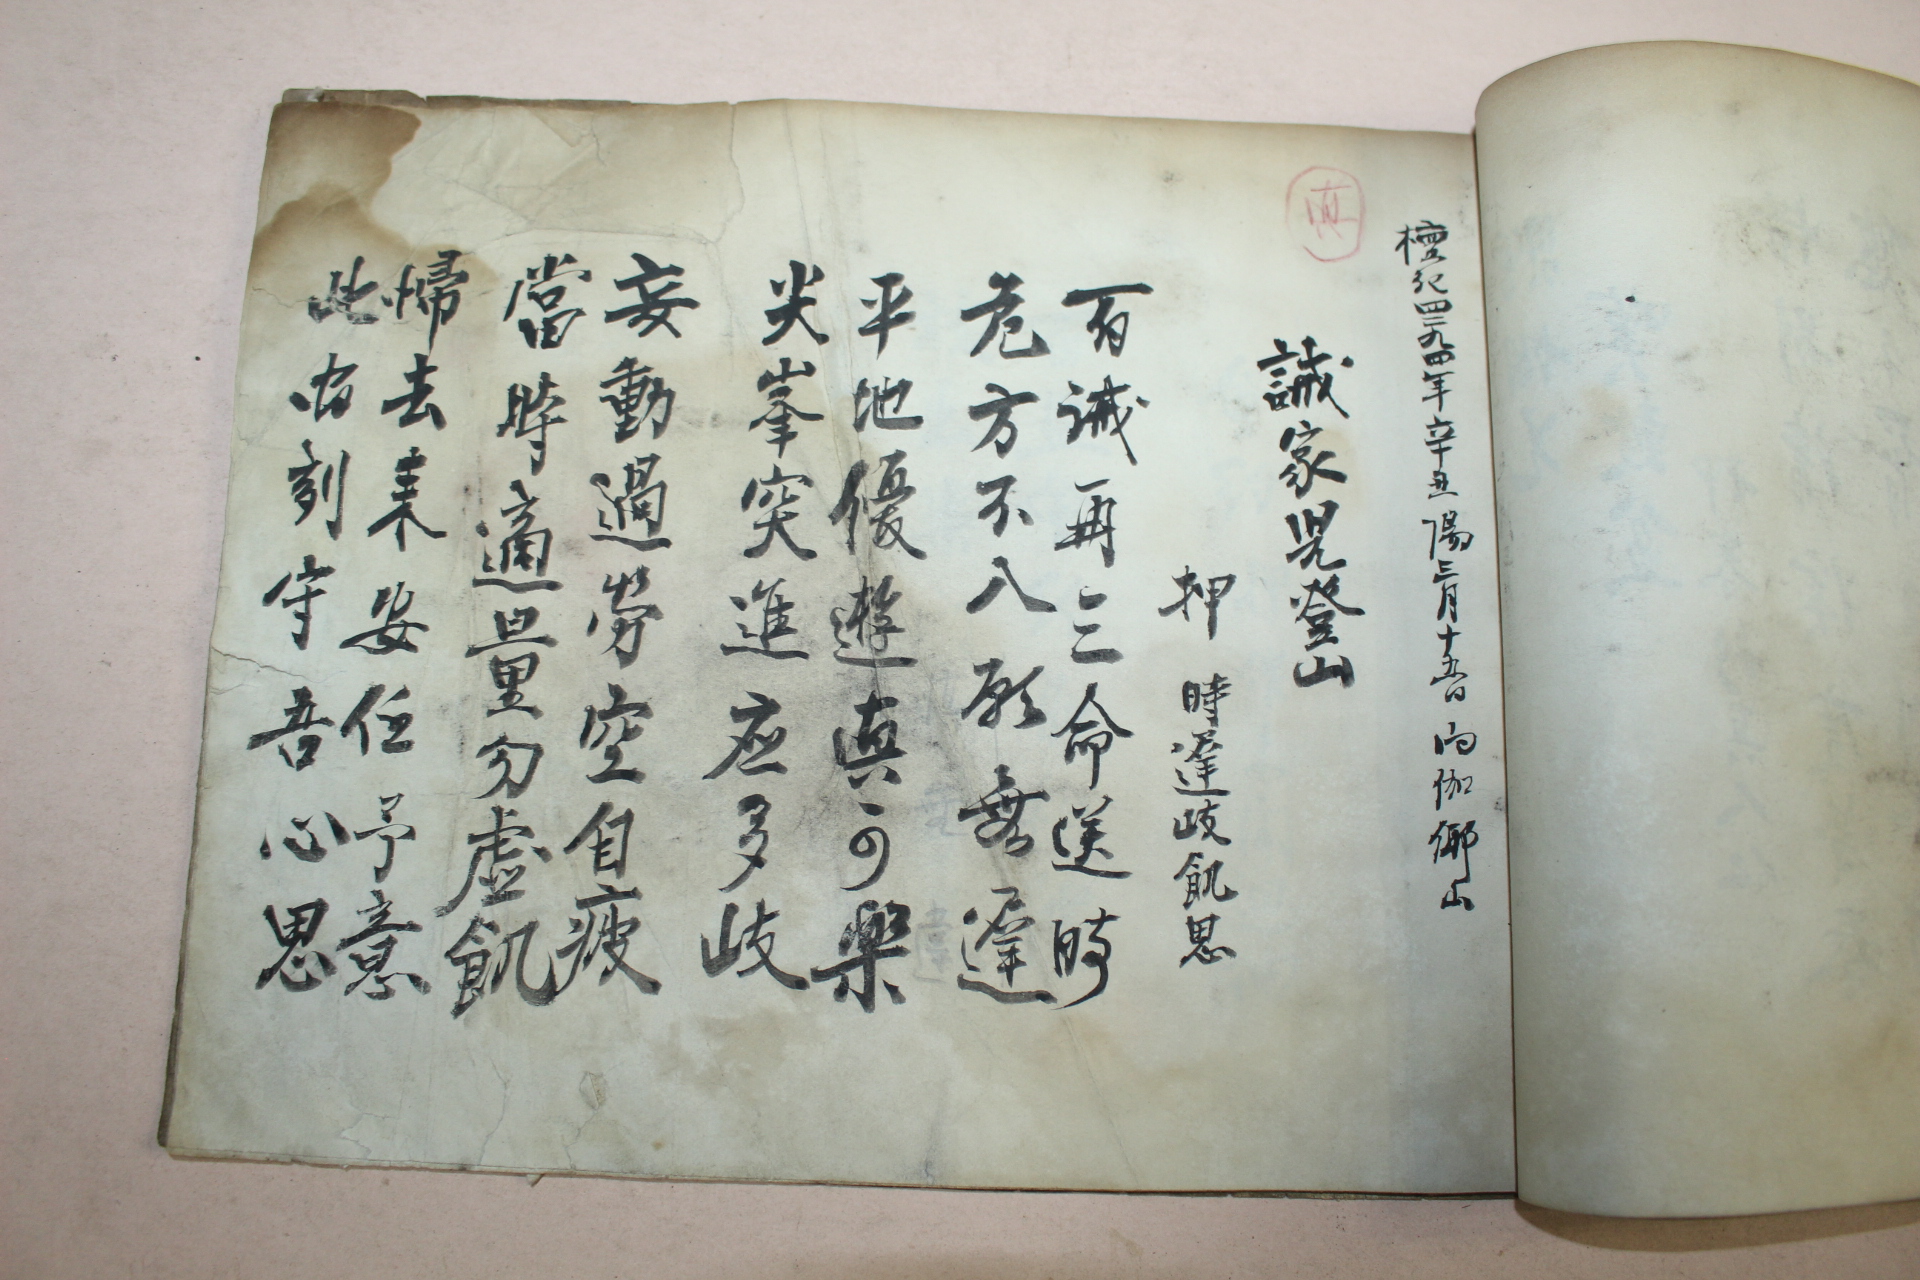 檀紀四二九四年辛丑陽三月十五日 向伽倻山
誡家児登山
押 時遅岐飢思
百誡再三命送時
危方不入願無遅
平地優遊真可樂
尖峯突進応多岐
妄動過勞空自疲
當時適量勿虛飢
帰去来安任予意
此由刻守吾心思